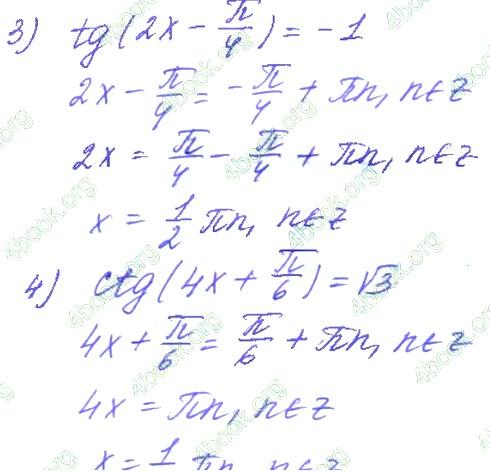 3) tg(2x - π/4) = -1
2x - π/4 = -π/4 + πn, n∈Z
2x = π/4 - π/4 + πn, n∈Z
x = 1/2 πn, n∈Z
4) ctg(4x + π/6) = √3
4x + π/6 = π/6 + πn, n∈Z
4x = πn, n∈Z
x = 1 πn, n∈Z
4book.org